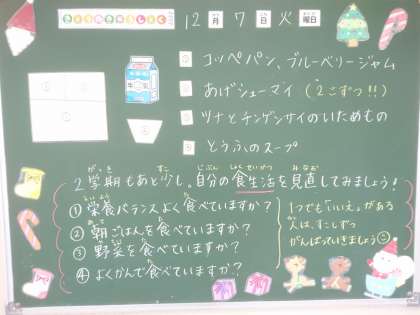 きょうのきゅうしょく
12月7日火曜日
① コッペパン、ブルーベリージャム
② あげシューマイ (2こずつ!!)
③ ツナとチンゲンサイのいためもの
④ とうふのスープ
牛乳
2学期もあと少し。自分の食生活を見直してみましょう!
①栄養バランスよく食べていますか?
②朝ごはんを食べていますか?
③野菜を食べていますか?
④よくかんで食べていますか?
1つでも「いいえ」がある
人は、すこしずつ
がんばっていきましょう